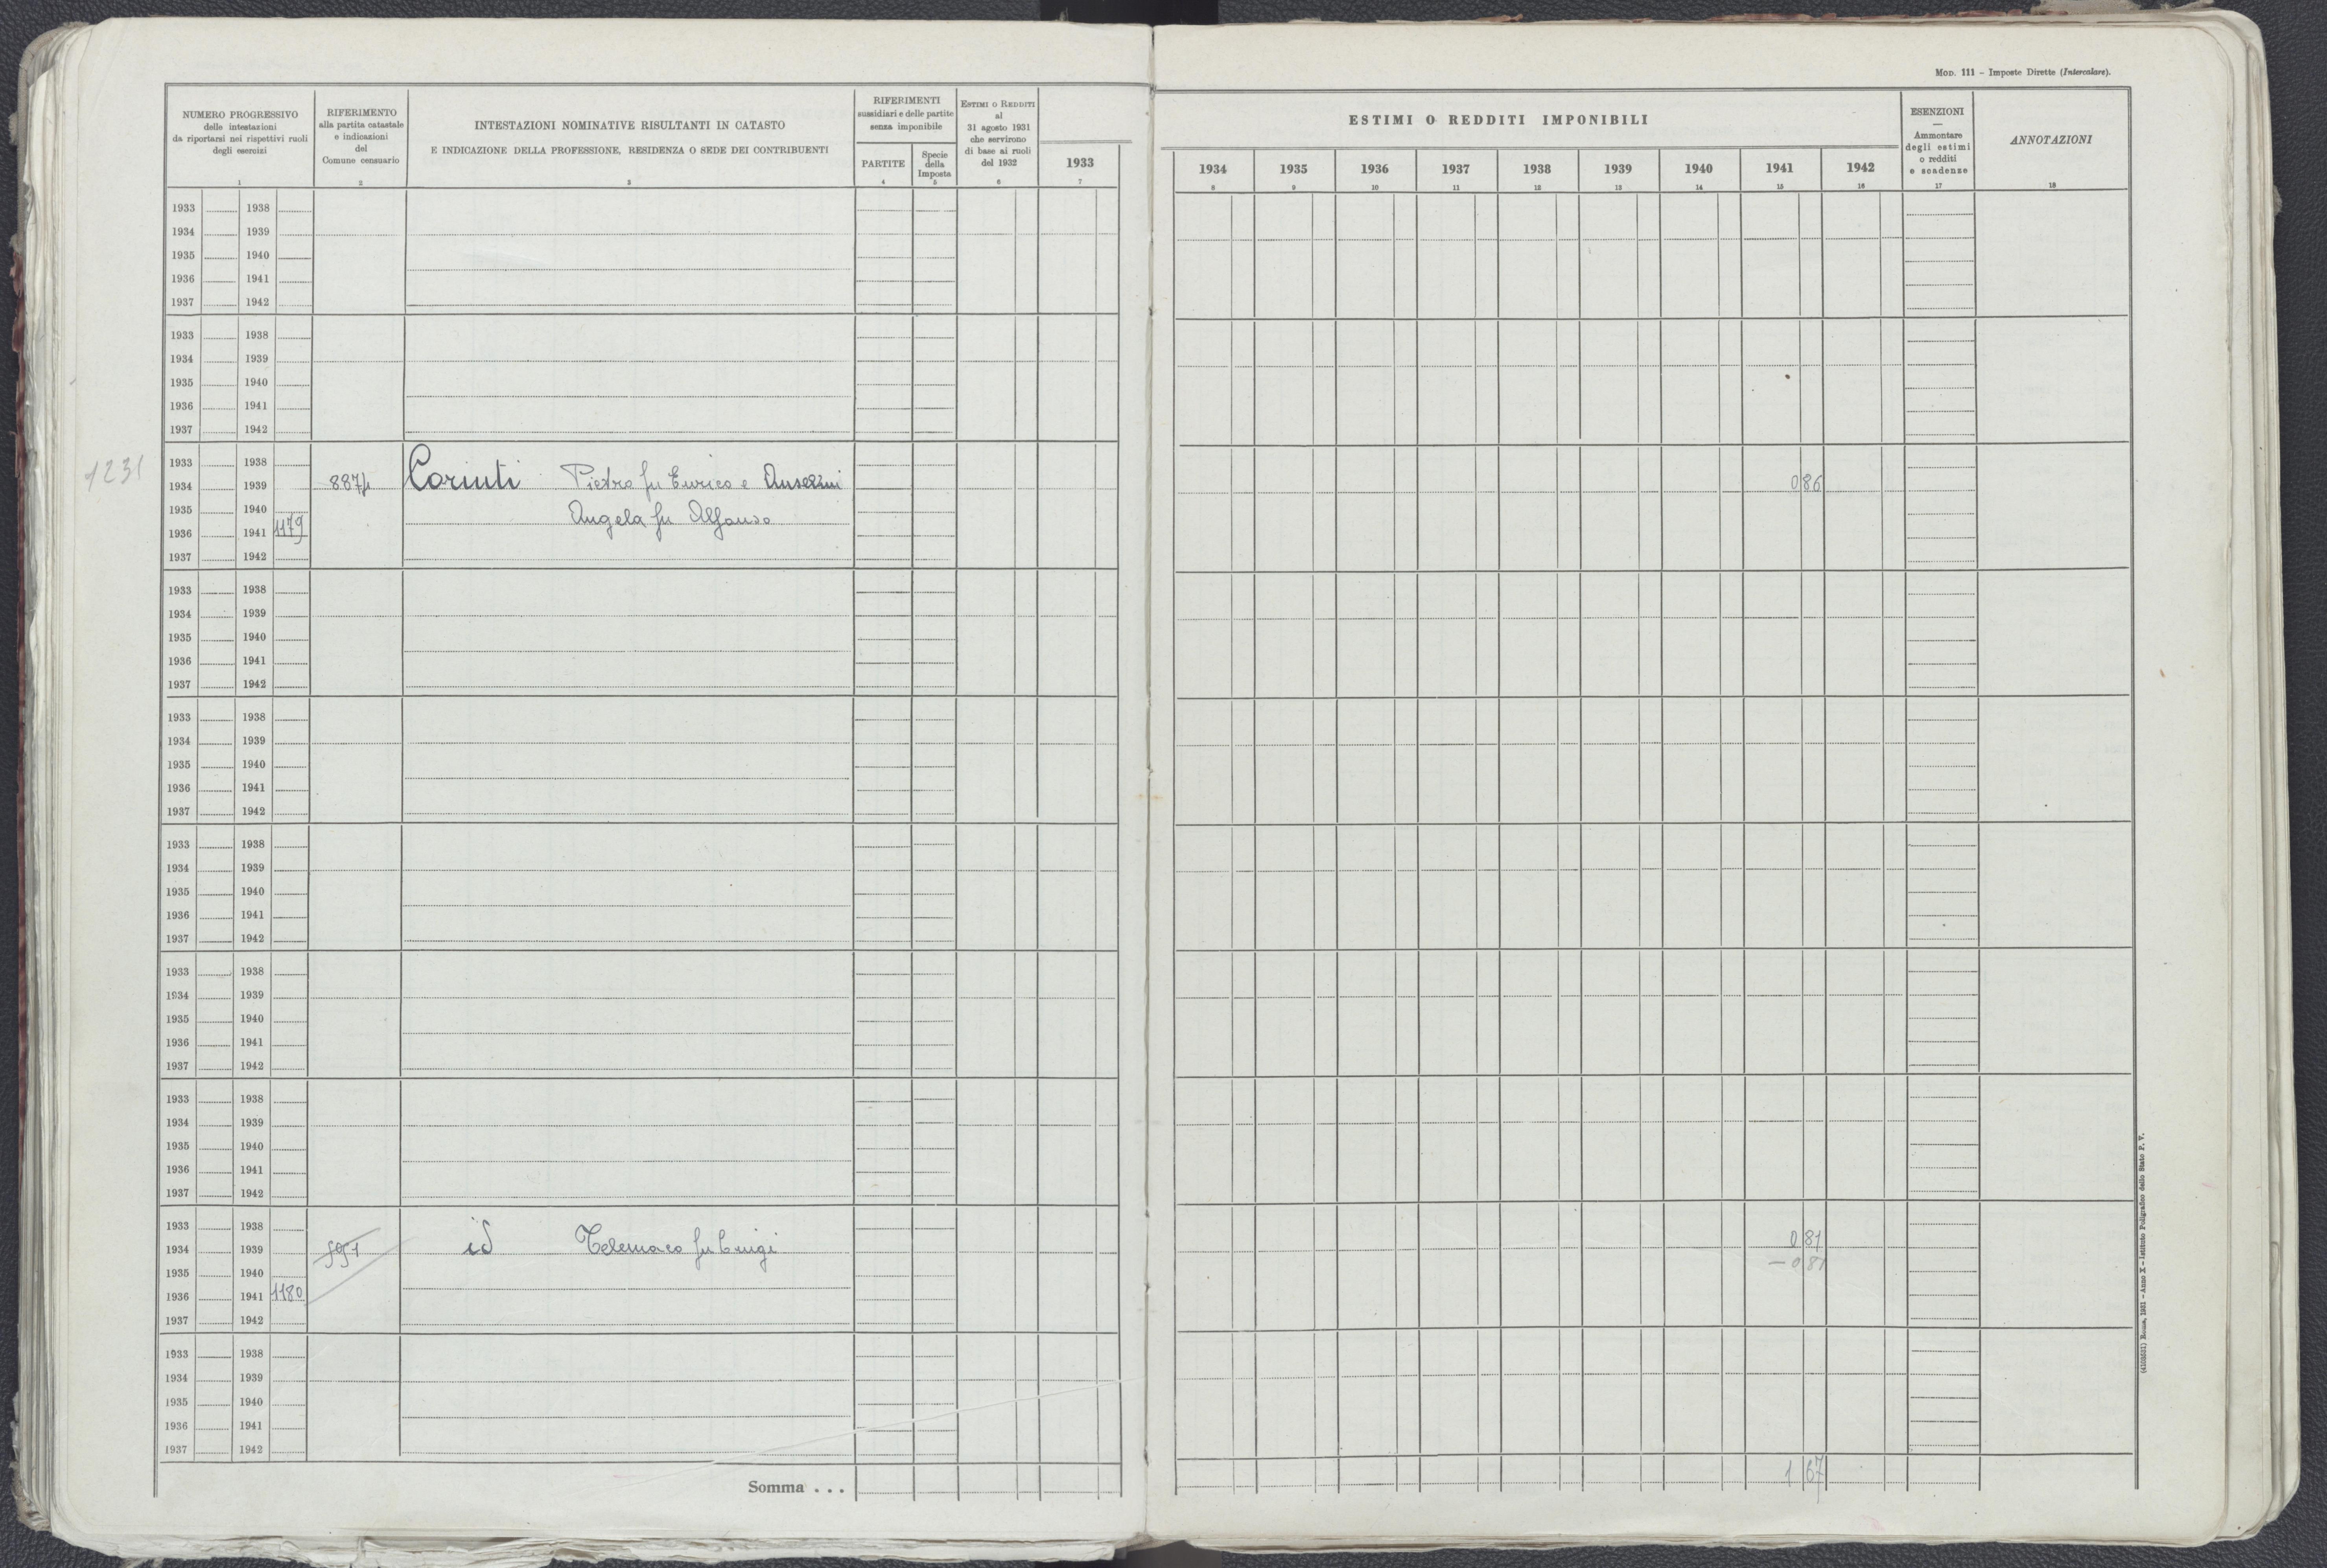 MOD. 111 – Imposte Dirette (Intercalare).
NUMERO PROGRESSIVO
delle intestazioni
da riportarsi nei rispettivi ruoli
degli esercizi
1
RIFERIMENTO
alla partita catastale
e indicazioni
del
Comune censuario
2
INTESTAZIONI NOMINATIVE RISULTANTI IN CATASTO
E INDICAZIONE DELLA PROFESSIONE, RESIDENZA O SEDE DEI CONTRIBUENTI
3
RIFERIMENTI
sussidiari e delle partite
senza imponibile
PARTITE
4
Specie
della
Imposta
5
ESTIMI O REDDITI
al
31 agosto 1931
che servirono
di base ai ruoli
del 1932
6
1933
7
ESTIMI O REDDITI IMPONIBILI
1934 1935 1936 1937 1938 1939 1940 1941 1942
8 9 10 11 12 13 14 15 16
ESENZIONI
—
Ammontare
degli estimi
o redditi
e scadenze
17
ANNOTAZIONI
18
1933 1938
1934 1939
1935 1940
1936 1941
1937 1942
1933 1938
1934 1939
1935 1940
1936 1941
1937 1942
1231
1933 1938
1934 1939 8874 Corinti Pietro fu Enrico e Anselmi 0 86
1935 1940 Angela fu Alfonso
1936 1941 1179
1937 1942
1933 1938
1934 1939
1935 1940
1936 1941
1937 1942
1933 1938
1934 1939
1935 1940
1936 1941
1937 1942
1933 1938
1934 1939
1935 1940
1936 1941
1937 1942
1933 1938
1934 1939
1935 1940
1936 1941
1937 1942
1933 1938
1934 1939
1935 1940
1936 1941
1937 1942
1933 1938
1934 1939 id Telemaco fu Luigi 0 81
1935 1940 – 0 81
1936 1941 1180
1937 1942
1933 1938
1934 1939
1935 1940
1936 1941
1937 1942
Somma . . . 1 67
(4103531) Roma, 1931 – Anno X – Istituto Poligrafico dello Stato P. V.